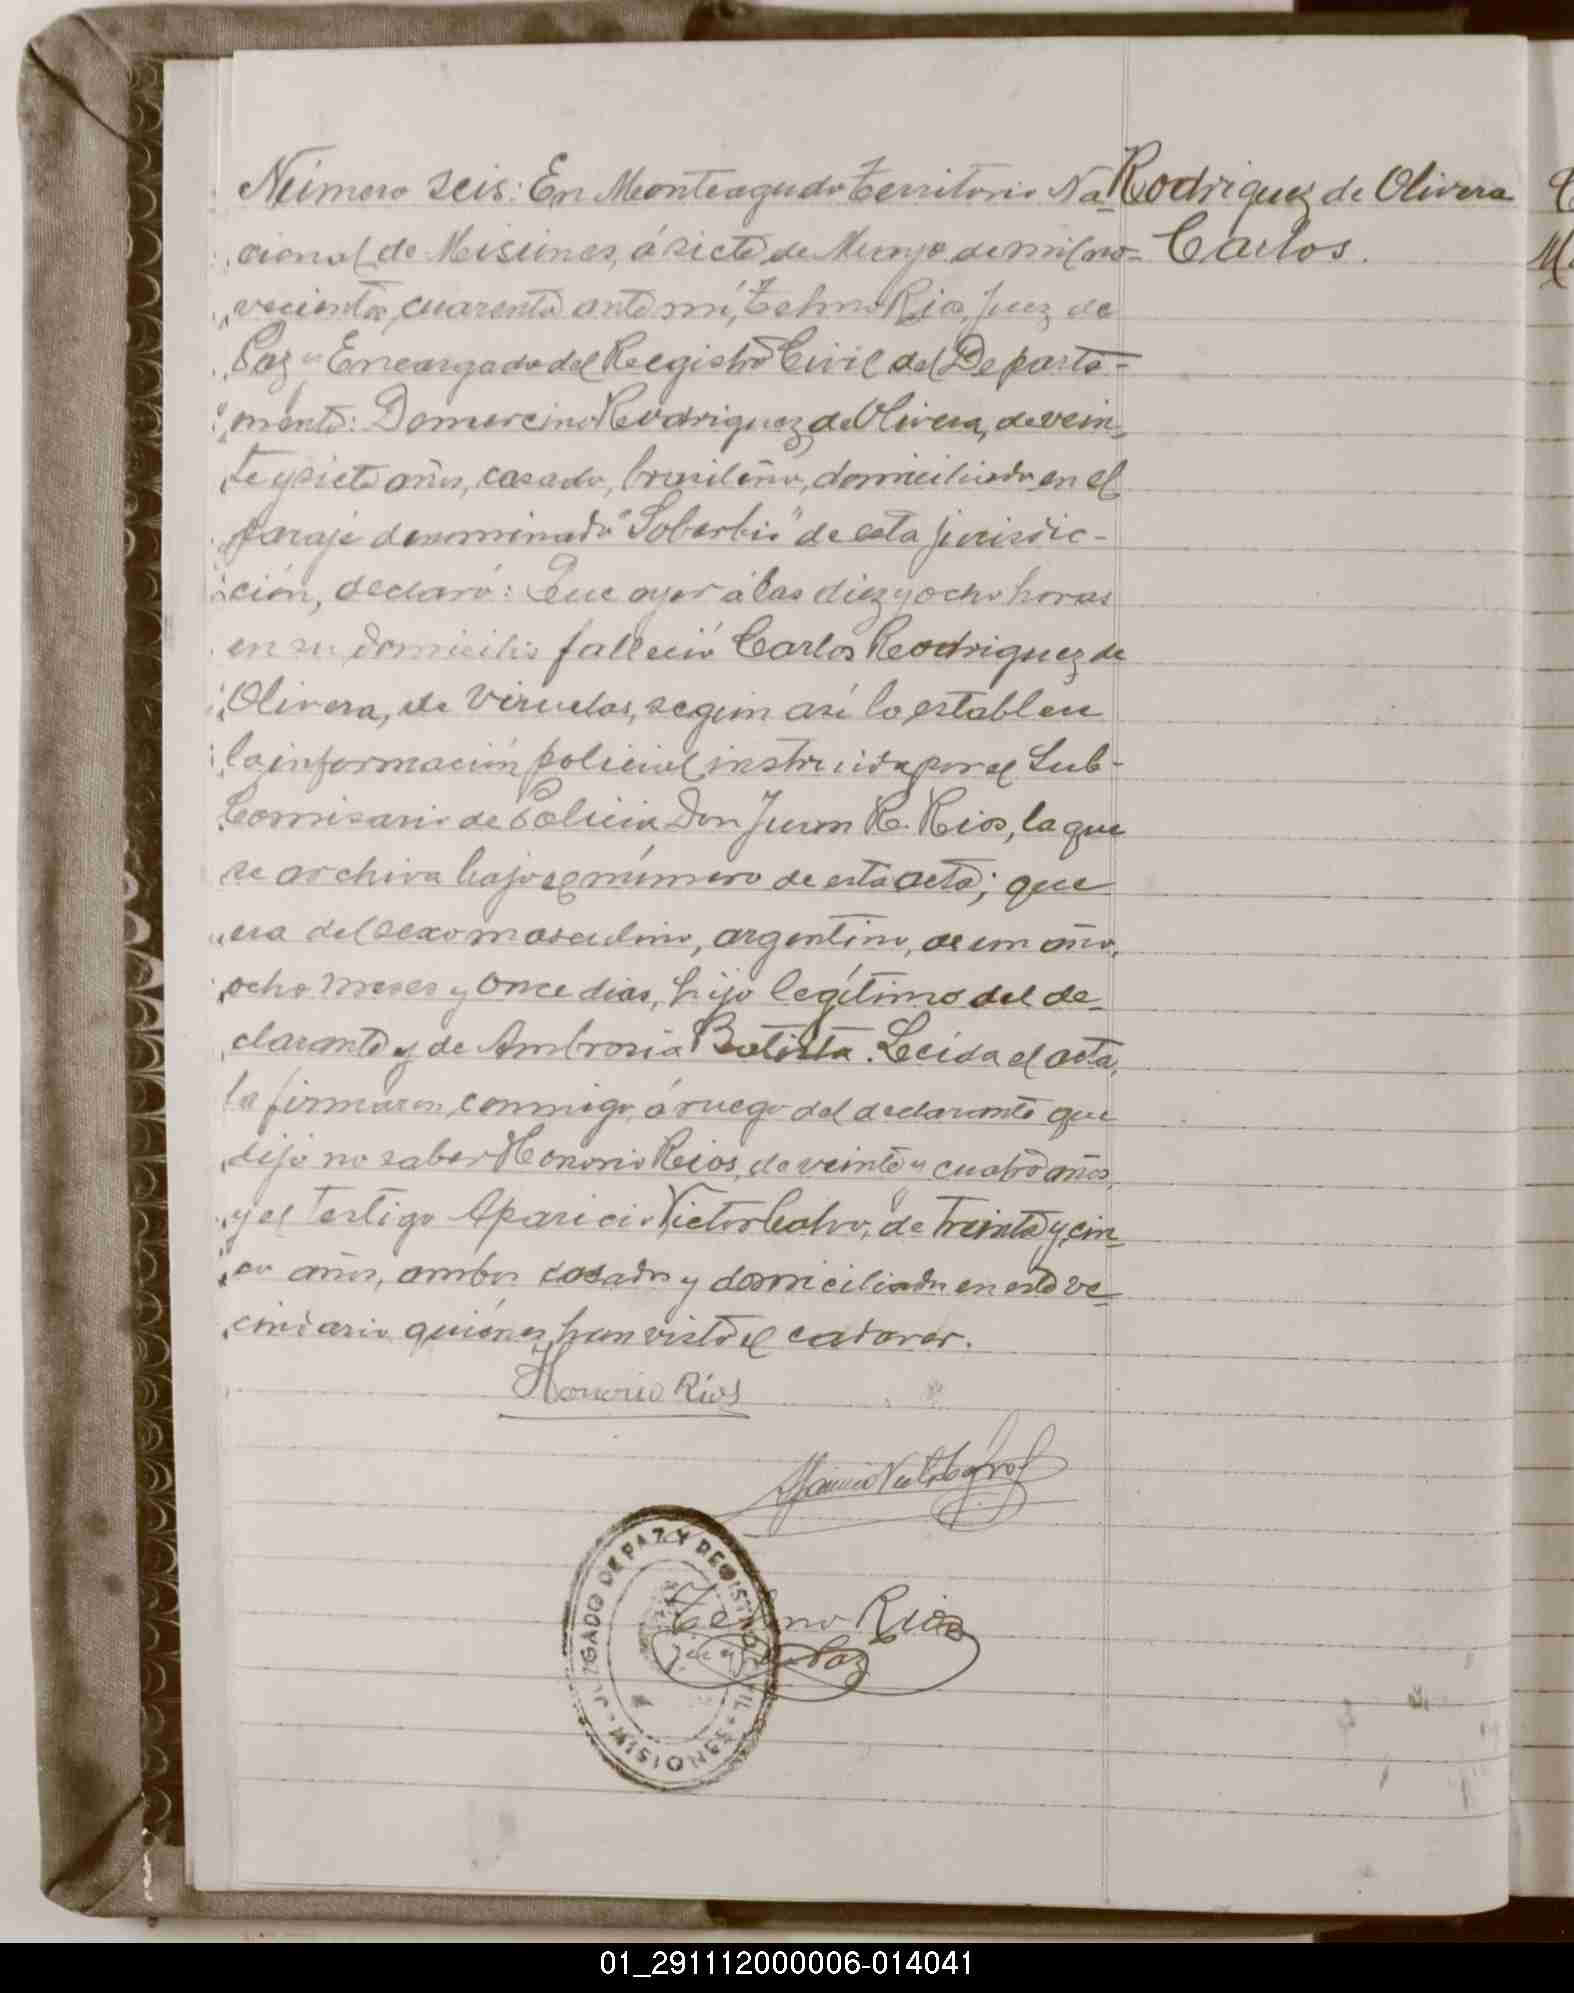 Número seis: En Monteagudo Territorio Na=
cional de Misiones, á siete de Mayo de mil no=
vecientos cuarenta ante mí, Telmo Rios, Juez de
Paz y Encargado del Registro Civil del Departa-
mento: Domercino Rodriguez de Olivera, de vein=
te y siete años, casado, brasileño, domiciliado en el
paraje denominado "Soberbio" de esta jurisdic-
ción, declaró: Que ayer á las diez y ocho horas
en su domicilio falleció Carlos Rodriguez de
Olivera, de viruelas, segun así lo establece
la información policial instruida por el Sub-
Comisario de Policia Don Juan R. Rios, la que
se archiva bajo el número de esta acta; que
era del sexo masculino, argentino, de un año,
ocho meses y once dias, hijo legítimo del de-
clarante y de Ambrosia Batista. Leida el acta,
la firmaron conmigo, á ruego del declarante que
dijo no saber Honorio Rios, de veinte y cuatro años,
y el testigo Aparicio Victor Calvo, de treinta y cin=
co años, ambos casados y domiciliados en este ve=
cindario quiénes han visto el cadaver.
Rodriguez de Olivera
Carlos.
Honorio Ríos
Telmo Rios
Juez de Paz
JUZGADO DE PAZ Y REGISTRO CIVIL
MISIONES
01_291112000006-014041